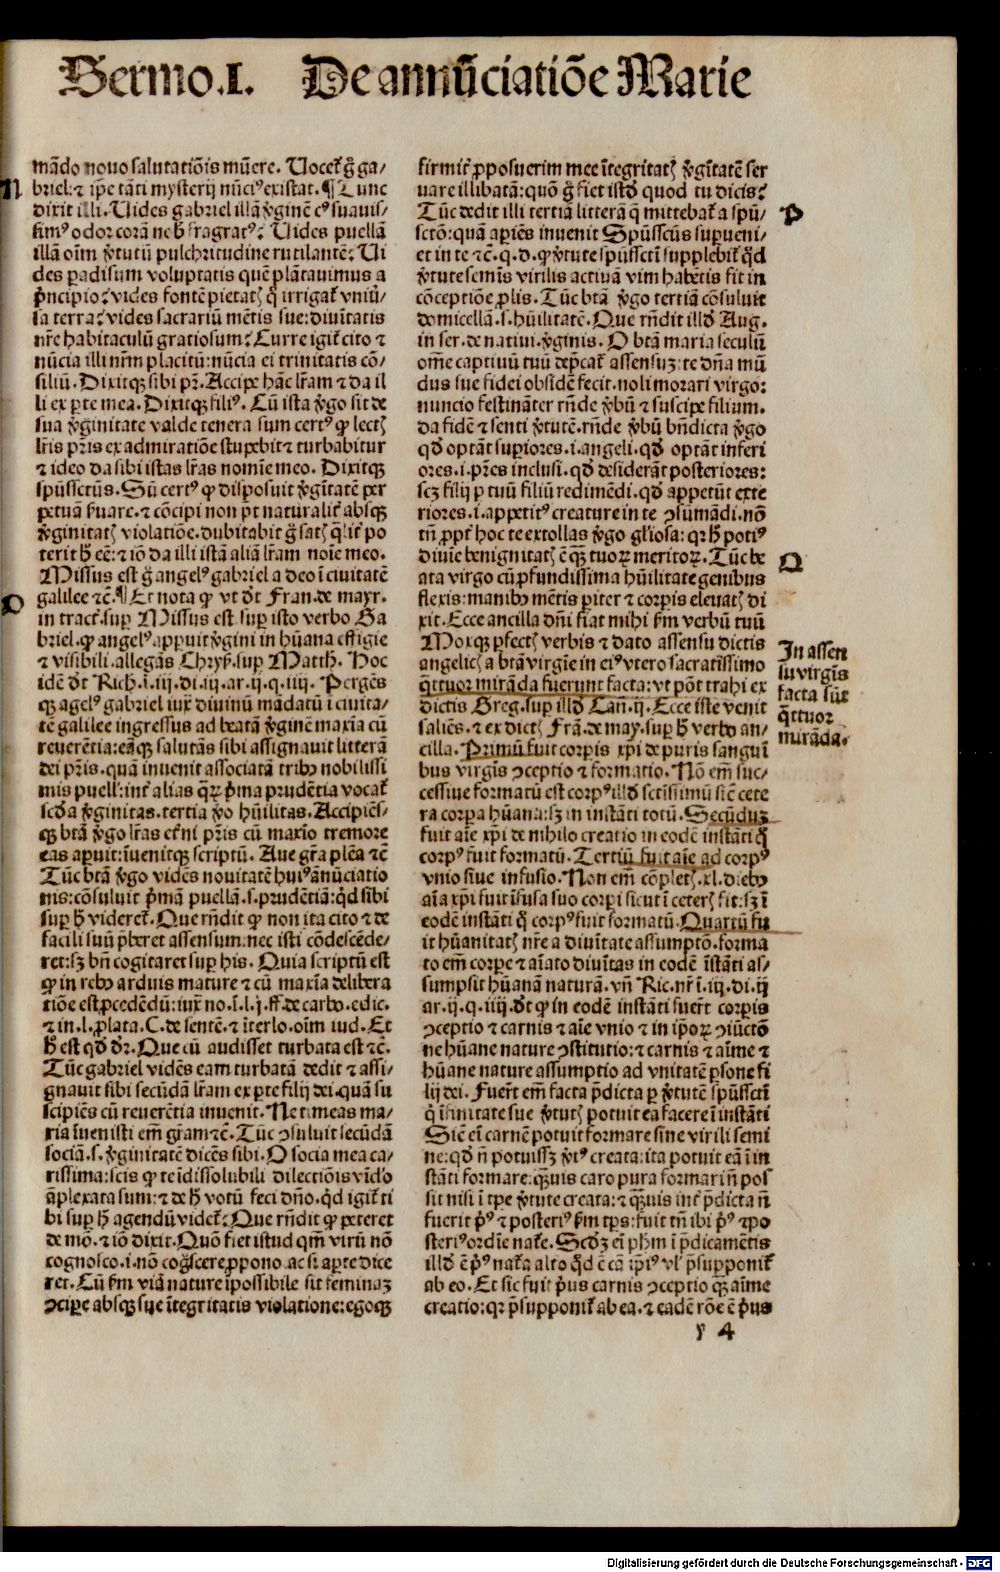 Sermo.I. De annūciatiōe Marie
mādo nouo salutatiōis mūere. Uocet̄ g̊ ga/
N
briel: ⁊ ip̄e tāti mysterij nūciꝰ existat. ¶ Tunc
dixit illi. Uides gabriel illā v̓ginē cꝰ suauis/
simꝰ odor corā nob̄ fragrat̉? Uides puellā
illā oīm v̓tutū pulchritudine rutilantē? Ui
des ꝑadisum voluptatis quē plātauimus a
pͥncipio? vides fontē pietatꝭ q̊ irrigat̉ vniū̓/
sa terra? vides sacrariū mētis sue: diuītatis
nr̄e habitaculū gratiosum? Curre igit̉ cito ⁊
nūcia illi nr̄m placitū: nūcia ei trinitatis cō/
siliū. Dixitqꝫ sibi pr̄. Accipe hāc lr̄am ⁊ da il
li ex ꝑte mea. Dixitqꝫ filiꝰ. Cū ista v̓go sit de
sua v̓ginitate valde tenera sum certꝰ ꝙ lectꝭ
lr̄is pr̄is ex admiratiōe stupebit ⁊ turbabitur
⁊ ideo da sibi istas lr̄as nomīe meo. Dixitqꝫ
spūssctūs. Sū certꝰ ꝙ disposuit v̓gītatē per
petuā ẜuare. ⁊ cōcipi non pōt naturalit̉ absqꝫ
v̓ginitatꝭ violatiōe. dubitabit g̊ satꝭ q̄lit̉ po
terit h̄ eē: ⁊ iō da illi istā aliā lr̄am noīe meo.
Missus est g̊ angelꝰ gabriel a deo ī ciuitatē
O
galilee ⁊c̄. ¶ Et nota ꝙ vt dt̄ Fran. de mayr.
in tract̄. suꝑ Missus est. suꝑ isto verbo Ga
briel. ꝙ angelꝰ apparuit v̓gini in hūana effigie
⁊ visibili. allegās Chryẜ. suꝑ Matth̄. Hoc
idē dt̄ Rich̄. ī. iij. di. iij. ar. ij. q. iiij. Pergēs
qꝫ āgelꝰ gabriel iux̄ diuinū mādatū ī ciuita/
tē galilee ingressus ad beatā v̓ginē maxīa cū
reuerētia: eāqꝫ salutās sibi assignauit litterā
dei pr̄is. quā inuenit associatā tribꝰ nobilissi
mis puell̓: int̉ alias q̄ꝝ pͥma prudētia vocat̉
scd̄a v̓ginitas. tertia v̊o hūilitas. Accipiēs/
qꝫ btā v̓go lr̄as et̄ni pr̄is cū maxīo tremore
eas aꝑuit: īuenitqꝫ scriptū. Aue gr̄a plēa ⁊c̄
Tūc btā v̓go vidēs nouitatē huiꝰ ānūciatio
nis: cōsuluit pͥmā puellā. s. prudētiā: qͥd sibi
suꝑ h̄ videret̉. Que rn̄dit ꝙ non ita cito ⁊ de
facili suū p̄beret assensum: nec isti cōdescēde/
ret: sꝫ bn̄ cogitaret suꝑ his. Quia scriptū est
ꝙ in rebꝰ arduis mature ⁊ cū maxīa delibera
tiōe est ꝓcedēdū: iux̄ no. ī. l. j. ff. de carbo. edic.
⁊ in. l. ꝓlata. C. de sentē. ⁊ īterlo. oīm iud. Et
h̄ est qd̄ dr̄. Que cū audisset turbata est ⁊c̄.
Tūc gabriel vidēs eam turbatā dedit ⁊ assi/
gnauit sibi secūdā lr̄am ex ꝑte filij dei. quā su
scipiēs cū reuerētia inuenit. Ne timeas ma/
ria īuenisti em̄ gr̄am ⁊c̄. Tūc ꝯsuluit secūdā
sociā. s. v̓ginitatē dicēs sibi. O socia mea ca/
rissima: scis ꝙ te īdissolubili dilectiōis vīclo
āplexata sum: ⁊ de h̄ votū feci dn̄o. qͥd igit̉ ti
bi suꝑ h̄ agendū videt̉? Que rn̄dit ꝙ peteret
de mō. ⁊ iō dixit. Quō fiet istud qm̄ virū nō
cognosco. i. nō cog̊scere ꝓpono. ac si aꝑte dice
ret. Cū ẜm viā nature īpossibile sit feminaꝫ
ꝯciꝑe absqꝫ sue ītegritatis violatione: egoqꝫ
firmit̉ ꝓposuerim mee ītegritatꝭ v̓gītatē ser
uare illibatā: quō g̊ fiet istd̄ quod tu dicis?
P
Tūc dedit illi tertiā litterā q̄ mittebat̉ a spū/
sctō: quā aꝑiēs inuenit Spūssctūs suꝑueni/
et in te ⁊c̄. q. d. ꝙ v̓tute spūssctī supplebit̉ qd̄
v̓tute semīs virilis actiuā vim habētis fit in
cōceptiōe ꝓlis. Tūc btā v̓go tertiā cōsuluit
domicellā. s. hūilitatē. Que rn̄dit illd̄ Aug.
in ser. de natiui. v̓ginis. O btā maria seculū
om̄e captiuū tuū dep̄cat̉ assensuꝫ: te dn̄a mū
dus sue fidei obsidē fecit. noli morari virgo:
nuncio festināter rn̄de v̓bū ⁊ suscipe filium.
da fidē ⁊ senti v̓tutē. rn̄de v̓bū bn̄dicta v̓go
qd̄ optāt suꝑiores. i. angeli. qd̄ optāt inferi
ores. i. pr̄es inclusi. qd̄ desiderāt posteriores:
scꝫ filij ꝑ tuū filiū redimēdi. qd̄ appetūt exte
riores. i. appetitꝰ creature in te ꝯsumādi. nō
tn̄ ꝓpt̉ hoc te extollas v̓go gl̓iosa: qꝛ h̄ potiꝰ
Q
diuīe benignitatꝭ ē qꝫ tuoꝝ meritoꝝ. Tūc be
ata virgo cū ꝓfundissima hūilitate genibus
flexis: manibꝰ mētis pariter ⁊ corꝑis eleuatꝭ di
xit. Ecce ancilla dn̄i fiat mihi ẜm verbū tuū
Moxqꝫ ꝑfectꝭ verbis ⁊ dato assensu dictis
angelicꝭ a btā virgīe in eiꝰ vtero sacratissimo
In assen
su virgīs
facta sūt
q̄ttuor
mirāda.
q̄ttuor mirāda fuerunt facta: vt pōt trahi ex
dictis Greg. suꝑ illd̄ Can̄. ij. Ecce iste venit
saliēs. ⁊ ex dictꝭ Frā. de may. suꝑ h̄ verbo an/
cilla. Primū fuit corꝑis xp̄i de puris sanguī
bus virgīs ꝯceptio ⁊ formatio. Nō em̄ suc/
cessiue formatū est corpꝰ illd̄ sctīssimū sic̄ cete
ra corꝑa hūana: sꝫ in instāti totū. Secūduꝫ
fuit aīe xp̄i de nihilo creatio in eodē instāti q̊
corpꝰ fuit formatū. Tertiū fuit aīe ad corpꝰ
vnio siue infusio. Non em̄ cōpletꝭ. xl. diebꝰ
aīa xp̄i fuit īfusa suo corꝑi sicut ī ceterꝭ fit: sꝫ ī
eodē instāti q̊ corpꝰ fuit formatū. Quartū fu
it hūanitatꝭ nr̄e a diuītate assumptō. forma
to em̄ corꝑe ⁊ aīato diuītas in eodē īstāti as/
sumpsit hūanā naturā. vn̄ Ric. nr̄ ī. iij. di. iij
ar. ij. q. iiij. dt̄ ꝙ in eodē instāti fuer̄t corꝑis
ꝯceptio ⁊ carnis ⁊ aīe vnio ⁊ in ip̄oꝝ ꝯiūctō
ne hūane nature ꝯstitutio: ⁊ carnis ⁊ aīme ⁊
hūane nature assumptio ad vnitatē ꝑsone fi
lij dei. Fuer̄t em̄ facta p̄dicta ꝑ v̓tutē spūssctī
qͥ īfinitate sue v̓tutꝭ potuit ea facere ī instāti
Sic̄ em̄ carnē potuit formare sine virili semi
ne: qd̄ n̄ potuissꝫ v̓tꝰ creata: ita potuit eā ī in
stāti formare: q̄ꝫuis caro pura formari n̄ pos
sit nisi ī tꝑe v̓tute creata: ⁊ q̄ꝫuis int̉ p̄dicta n̄
fuerit pͥꝰ ⁊ posteriꝰ ẜm tp̄s: fuit tn̄ ibi pͥꝰ ⁊ po
steriꝰ ordīe nat̉e. Scd̄ꝫ em̄ ph̄m ī p̄dicamētis
illd̄ ē pͥꝰ nat̉a alto qd̄ ē cā ip̄iꝰ vl̓ p̄supponit̉
ab eo. Et sic fuit pͥus carnis ꝯceptio qꝫ aīme
creatio: qꝛ p̄supponit̉ ab ea. ⁊ eadē rōe ē pͥus
r 4
Digitalisierung gefördert durch die Deutsche Forschungsgemeinschaft - DFG